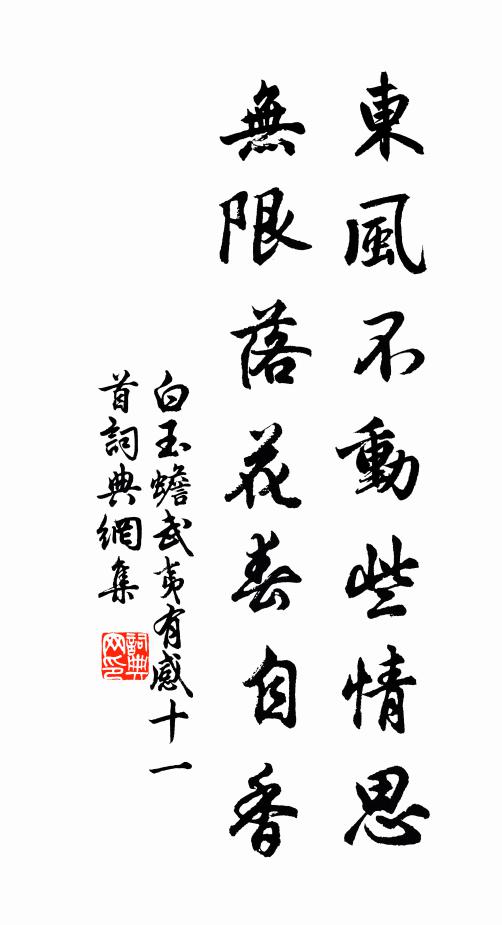 東風不動些情思
無限落花春自香
白玉蟾武夷有感十一
首詞典網集
詞典
网印